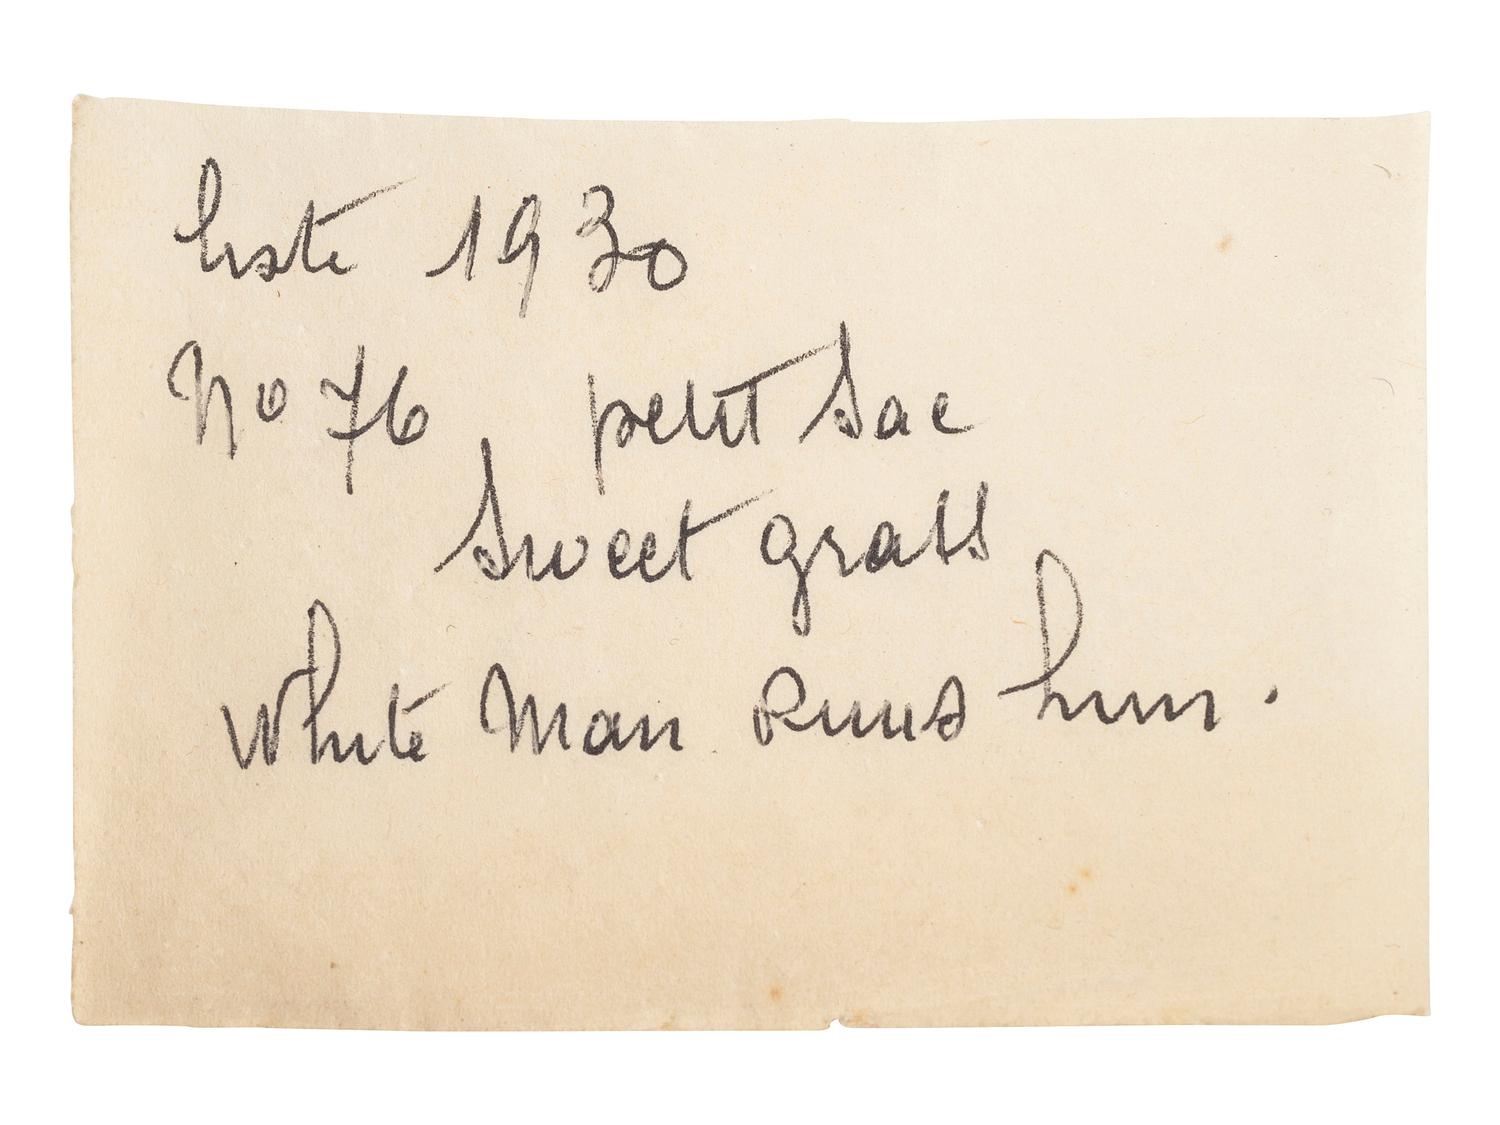 liste 1930
No 76, petit sac
Sweet grass
White Man Runs him.